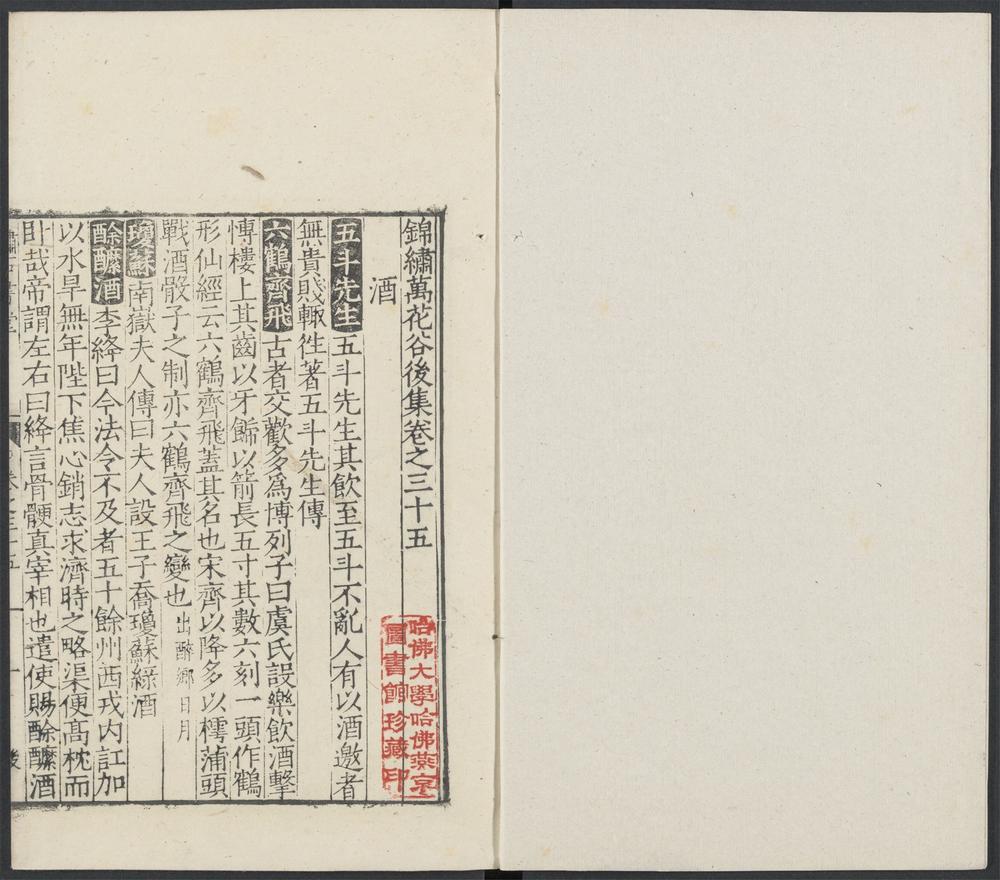 錦繡萬花谷後集卷之三十五
酒
五斗先生五斗先生其飲至五斗不亂人有以酒邀者
無貴賤輙徃著五斗先生傳
六鶴齊飛古者交歡多爲博列子曰虞氏設樂飲酒擊
愽樓上其齒以牙飾以箭長五寸其數六刻一頭作鶴
形仙經云六鶴齊飛蓋其名也宋齊以降多以樗蒲頭
戰酒骰子之制亦六鶴齊飛之變也出醉鄉日月
瓊蘇南嶽夫人傳曰夫人設王子喬瓊蘇緑酒
酴醿酒李絳曰今法令不及者五十餘州西戎内訌加
以水旱無年陛下焦心銷志求濟時之略渠便髙枕而
卧哉帝謂左右曰絳言骨鯁真宰相也遣使賜酴醿酒
哈佛大學哈佛燕京
圖書館珍藏印